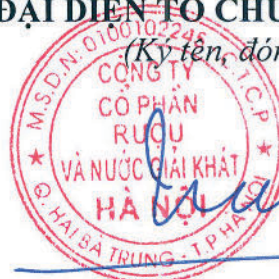 ĐẠI DIỆN TỔ CHỨ
(Ký tên, đón
M.S.D.N: 0100102245 - C.T.C.P
CÔNG TY
CỔ PHẦN
RƯỢU
VÀ NƯỚC GIẢI KHÁT
HÀ NỘI
Q. HAI BÀ TRƯNG - T.P HÀ NỘI